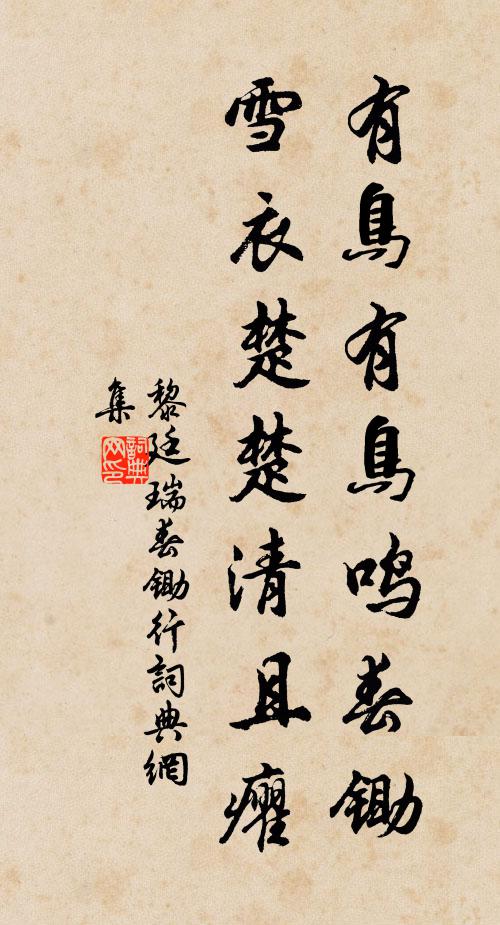 有鳥有鳥鳴春鋤
雪衣楚楚清且癯
黎廷瑞春鋤行詞典網
集
詞典网印